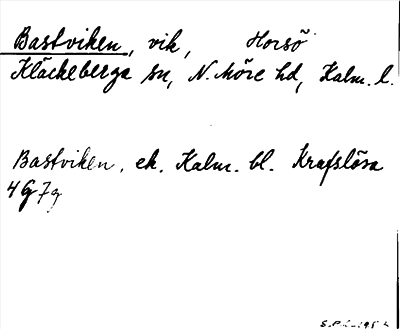 Bastviken, vik, Horsö
Kläckeberga sn, N. Möre hd, Kalm. l.
Bastviken, ek. Kalm. bl. Krafslösa
4G7g